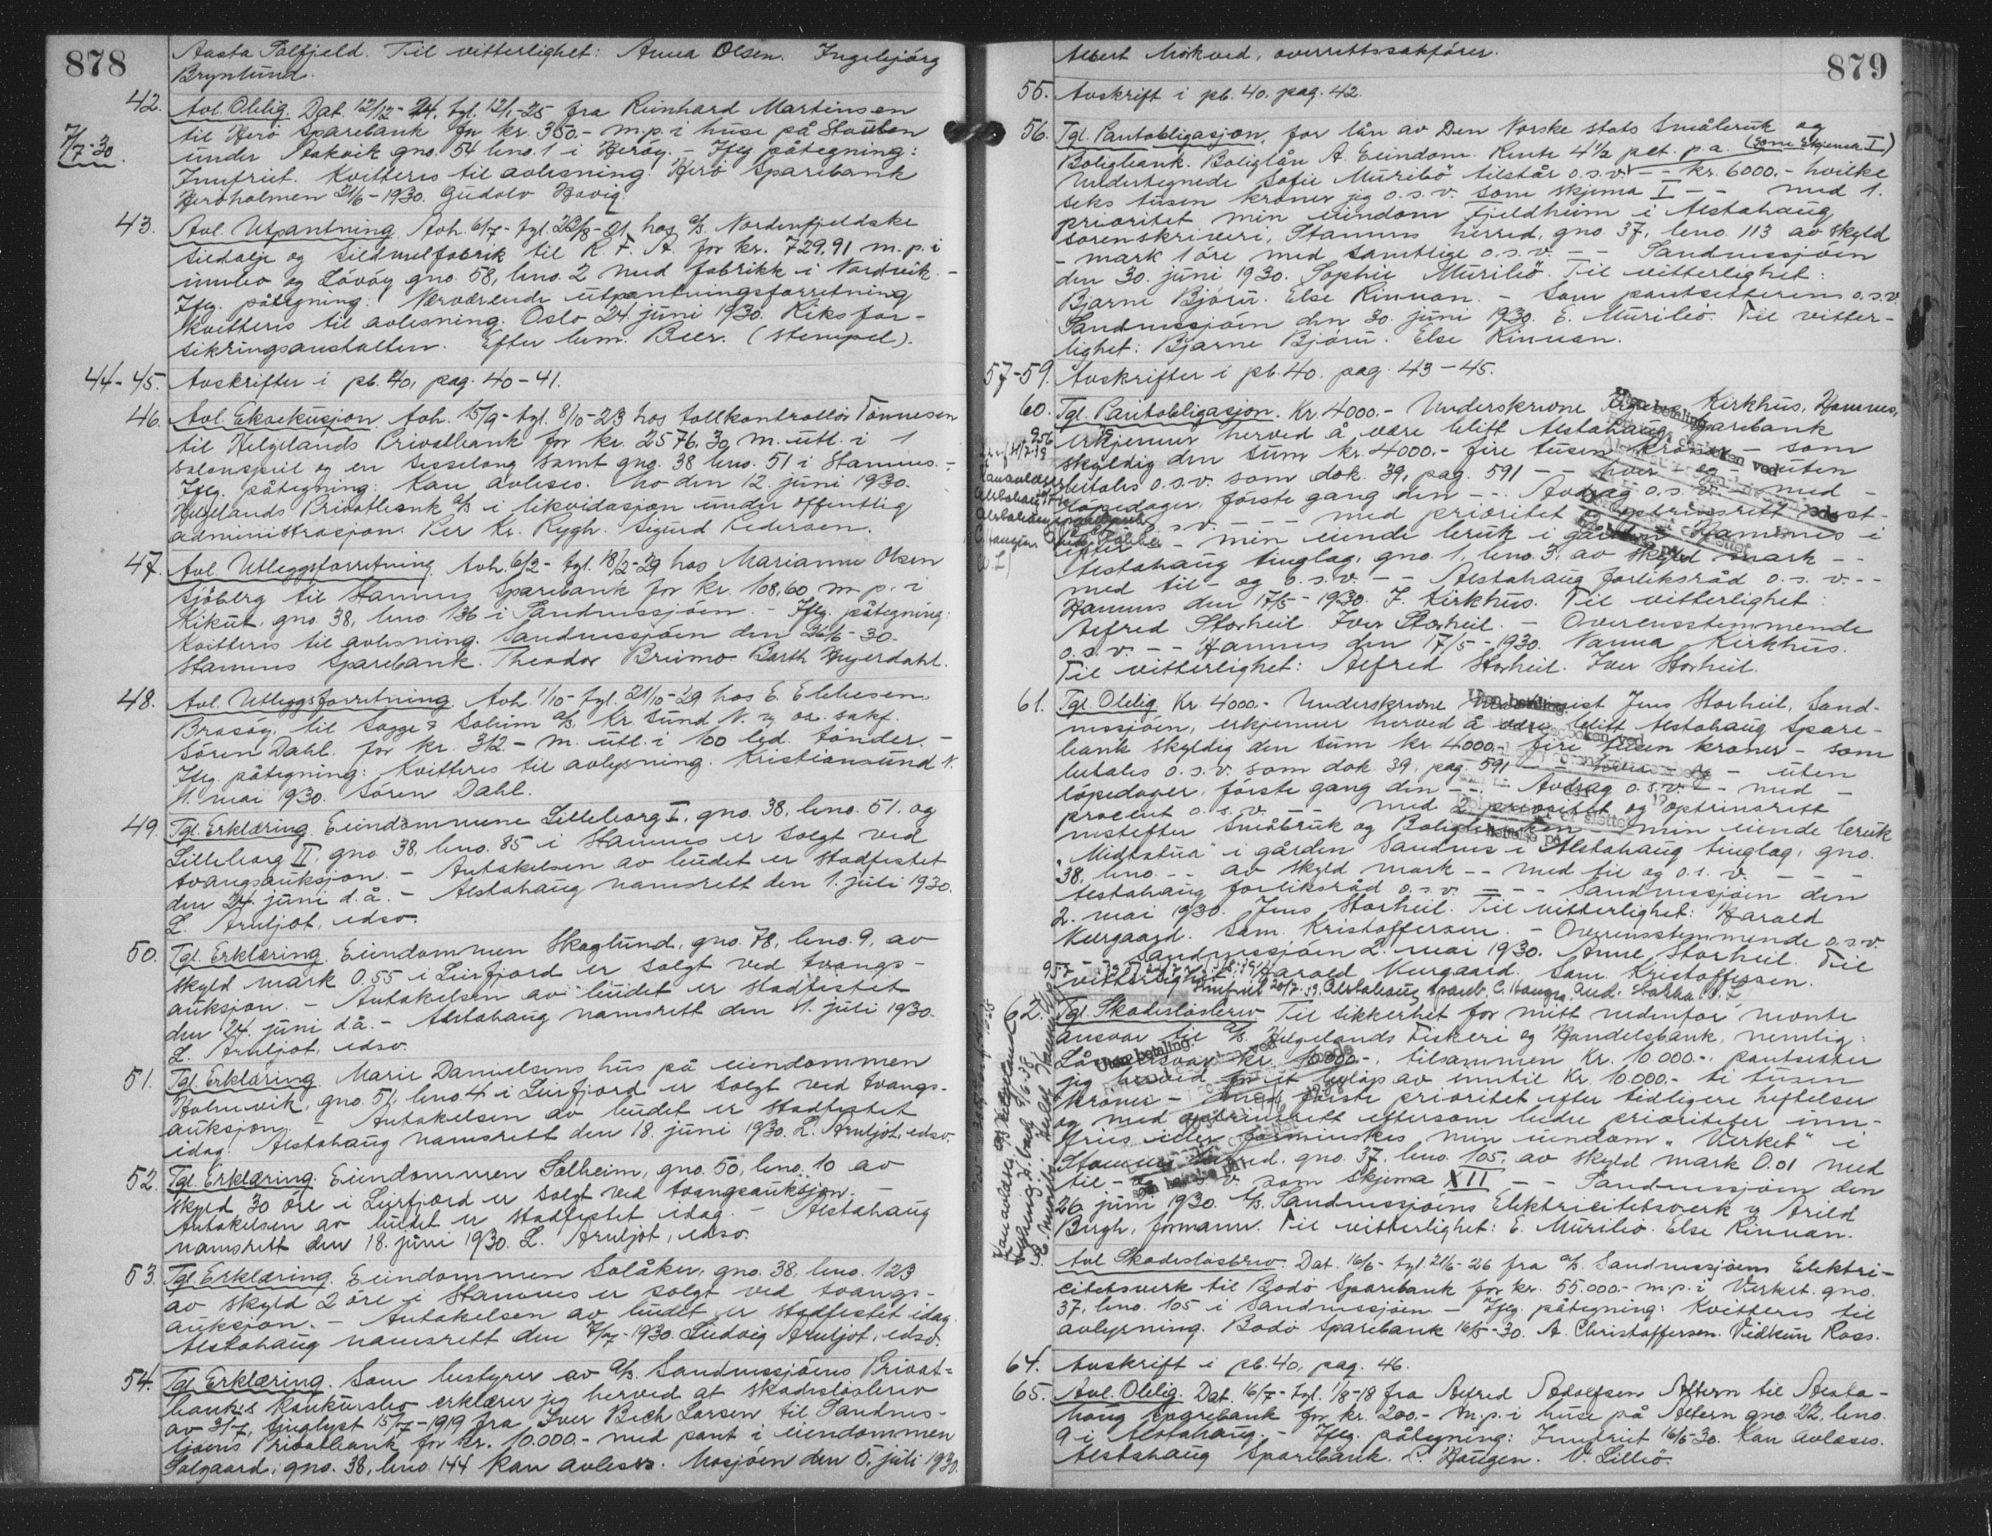 878
Aasta Solfjeld. Til vitterlighet: Anna Olsen. Ingebjörg
Brynlund.
42. Avl. Oblig. Dat. 12/12-24, tgl. 12/1-25 fra Reinhard Martinsen
til Herö Sparebank for kr. 350.- m.p. i huse på Stoulen
7/7-30 under Aakvik gno. 54 bno. 1 i Heröy. - Iflg. påtegning:
Innfriet. Kvitteres til avlesning. Herö Sparebank
Heröholmen 21/6-1930. Gudolv Hovig.
43. Avl. Utpantning. Avh. 6/7- tgl. 23/8-21 hos a/s Nordenfjeldske
sildolje og sildmelfabrik til R. F. A. for kr. 729,91 m.p. i
innbo og Lövöy gno. 58, bno. 2 med fabrikk i Nordvik. -
Iflg. påtegning: Nærværende utpantningsforretning
kvitteres til avlesning. Oslo 24. juni 1930. Riksfor-
sikringsanstalten. Efter bem. Beer. (stempel).
44-45. Avskrifter i pb. 40, pag. 40-41.
46. Avl. Eksekusjon. Avh. 15/9- tgl. 8/10-23 hos tollkontrollör Tönnesen
til Helgelands Privatbank for kr. 2576,30 m. utl. i 1
salonspeil og en sesselong samt gno. 38 bno. 51 i Stamnes. -
Iflg. påtegning: Kan avleses. Mo den 12. juni 1930.
Helgelands Privatbank a/s i likvidasjon under offentlig
administrasjon. Per Kr. Rygh. Sigurd Pedersen.
47. Avl. Utleggsforretning. Avh. 6/2- tgl. 18/2-29 hos Marianne Olsen
Sjöberg til Stamnes Sparebank for kr. 108,60 m.p. i
Kikut, gno. 38, bno. 136 i Sandnessjöen. - Iflg. påtegning:
Kvitteres til avlesning. Sandnessjöen den 26/6-30.
Stamnes Sparebank. Theodor Breimo. Barth Heyerdahl.
48. Avl. Utleggsforretning. Avh. 1/10- tgl. 21/10-29 hos E. Ebbesen
Brasöy, til Sogge & Solheim a/s Kr. Sund N. v/ o.r. sakf.
Sören Dahl. for kr. 312 - m. utl. i 100 tönder. -
Iflg. påtegning: Kvitteres til avlysning. Kristiansund N.
11. mai 1930. Sören Dahl.
49. Tgl. Erklæring. Eiendommene Lilleborg I, gno. 38, bno. 51, og
Lilleborg II, gno. 38, bno. 85 i Stamnes er solgt ved
tvangsauksjon. - Auksjonen av budet er stadfestet
den 24. juni d.å. - Alstahaug namsrett den 1. juli 1930.
L. Arnljot, edsv.
50. Tgl. Erklæring. Eiendommen Skoglund, gno. 78, bno. 9, av
skyld mark 0.55 i Leirfjord er solgt ved tvangs-
auksjon. - Antakelsen av budet er stadfestet
den 24. juni d.å. - Alstahaug namsrett den 1. juli 1930.
L. Arnljot, edsv.
51. Tgl. Erklæring. Marie Danielsens hus på eiendommen
Holmvik, gno. 51, bno. 4 i Leirfjord er solgt ved tvangs-
auksjon. Antakelsen av budet er stadfestet
idag. Alstahaug namsrett den 18. juni 1930. L. Arnljot, edsv.
52. Tgl. Erklæring. Eiendommen Solheim, gno. 50, bno. 10 av
skyld 30 öre i Leirfjord er solgt ved tvangsauksjon. -
Antakelsen av budet er stadfestet idag. - Alstahaug
namsrett den 18. juni 1930. L. Arnljot, edsv.
53. Tgl. Erklæring. Eiendommen Solåker, gno. 38, bno. 123
av skyld 2 öre i Stamnes er solgt ved tvangs-
auksjon. - Antakelsen av budet er stadfestet idag.
Alstahaug namsrett den 7/7-1930. Ludvig Arnljot, edsv.
54. Tgl. Erklæring. Som bestyrer av a/s Sandnessjöens Privat-
bank's konkursbo erklærer jeg herved at skadeslösbrev
av 3/7, tinglyst 15/7-1919 fra Iver Bech Larsen til Sandnes-
sjöens Privatbank for kr. 10.000.- med pant i eiendommen
Solgaard, gno. 38, bno. 144 kan avleses. Mosjöen den 5. juli 1930.
879
Albert Mökved, overrettssakförer.
55. Avskrift i pb. 40, pag. 42.
56. Tgl. Pantobligasjon, for lån av Den Norske stats Småbruk og
Boligbank. Boliglån A. Eiendom. Rente 4 1/2 pct. p.a. (Som Skjema I)
Undertegnede Sofie Muribö tilstår o.s.v. - - kr. 6000.- hvilke
seks tusen kroner jeg o.s.v. som skjema I - - med 1.
prioritet min eiendom Fjeldheim i Alstahaug
sorenskriveri, Stamnes herred, gno. 37, bno. 113 av skyld
- mark 1 öre med samtlige o.s.v. - - Sandnessjöen
den 30. juni 1930. Sophie Muribö. Til vitterlighet:
Bjarne Björu. Else Rinvan. - Som pantsetterens o.s.v.
Sandnessjöen den 30. juni 1930. E. Muribö. Til vitter-
lighet: Bjarne Björu. Else Rinvan.
57-59. Avskrifter i pb. 40. pag. 43-45.
60. Tgl. Pantobligasjon. Kr. 4000.- Underskrevne Kirkhus, Hamnes,
erkjenner herved å være blitt Alstahaug Sparebank
skyldig den sum kr. 4000.- fire tusen kroner - som
betales o.s.v. som dok. 39, pag. 591 - - uten
löpedager, förste gang den - - - Avdrag o.s.v. - med -
o.s.v. - - med prioritet og optrinsrett nest-
efter - - min eiende bruk i gården Hamnes i
Alstahaug tinglag, gno. 1, bno. 3, av skyld mark - -
med til- og o.s.v. - - Alstahaug forliksråd o.s.v. - -
Hamnes den 17/5-1930. J. Kirkhus. Til vitterlighet:
Alfred Storheil. Iver Storheil. - Overensstemmende
o.s.v. - - Hamnes den 17/5-1930. Nanna Kirkhus.
Til vitterlighet: Alfred Storheil. Iver Storheil.
61. Tgl. Oblig. Kr. 4000.- Underskrevne Jens Storheil, Sand-
nessjöen, erkjenner herved å være blitt Alstahaug Spare-
bank skyldig den sum kr. 4000.- fire tusen kroner - som
betales o.s.v. som dok. 39, pag. 591 - - uten
löpedager, förste gang den - - - Avdrag o.s.v. - med -
procent o.s.v. - - med 2 prioritet og optrinsrett
nestefter Småbruk og Boligbanken min eiende bruk
"Midtstua" i gården Sandnes i Alstahaug tinglag, gno.
38, bno. - - av skyld mark - - med til og o.s.v. - - -
Alstahaug forliksråd o.s.v. - - - Sandnessjöen den
2. mai 1930. Jens Storheil. Til vitterlighet: Harald
Neergaard. Sam. Kristoffersen. - Overensstemmende o.s.v.
- - Sandnessjöen 2. mai 1930. Anne Storheil. Til
vitterlighet: Harald Neergaard. Sam. Kristoffersen.
62. Tgl. Skadeslösbrev. Til sikkerhet for mitt nedenfor nevnte
ansvar til a/s Helgelands Fiskeri og Handelsbank, nemlig:
Låneansvar kr. 10.000.-, tilsammen kr. 10.000.-, pantsetter
jeg herved for et belöp av inntil kr. 10.000.- ti tusen
kroner - med förste prioritet efter tidligere heftelser
og med optrinsrett eftersom bedre prioriteter inn-
fries eller forminskes min eiendom "Verket" i
Stamnes herred, gno. 37, bno. 105, av skyld mark 0.01 med
til- og o.s.v. som skjema XII - - Sandnessjöen den
26. juni 1930. a/s Sandnessjöens Elektricitetsverk v/ Arild
Bergh, formann. Til vitterlighet: E. Muribö. Else Rinvan.
Avl. Skadeslösbrev. Dat. 16/6- tgl. 21/6-26 fra a/s Sandnessjöens Elektri-
citetsverk til Bodö Sparebank for kr. 55.000.- m.p. i Verket. gno.
37, bno. 105 i Sandnessjöen - Iflg. påtegning: Kvitteres til
avlysning. Bodö Sparebank 16/5-30. A. Christoffersen. Vidkun Ross.
64. Avskrift i pb. 40, pag. 46.
65. Avl. Oblig. Dat. 16/7- tgl. 1/8-18 fra Alfred Adolfsen Altern til Alsta-
haug Sparebank for kr. 200.- m.p. i huse på Altern gno. 22, bno.
9 i Alstahaug. - Iflg. påtegning: Innfriet 16/6-30. Kan avleses.
Alstahaug Sparebank. C. Haugen. V. Lillö.